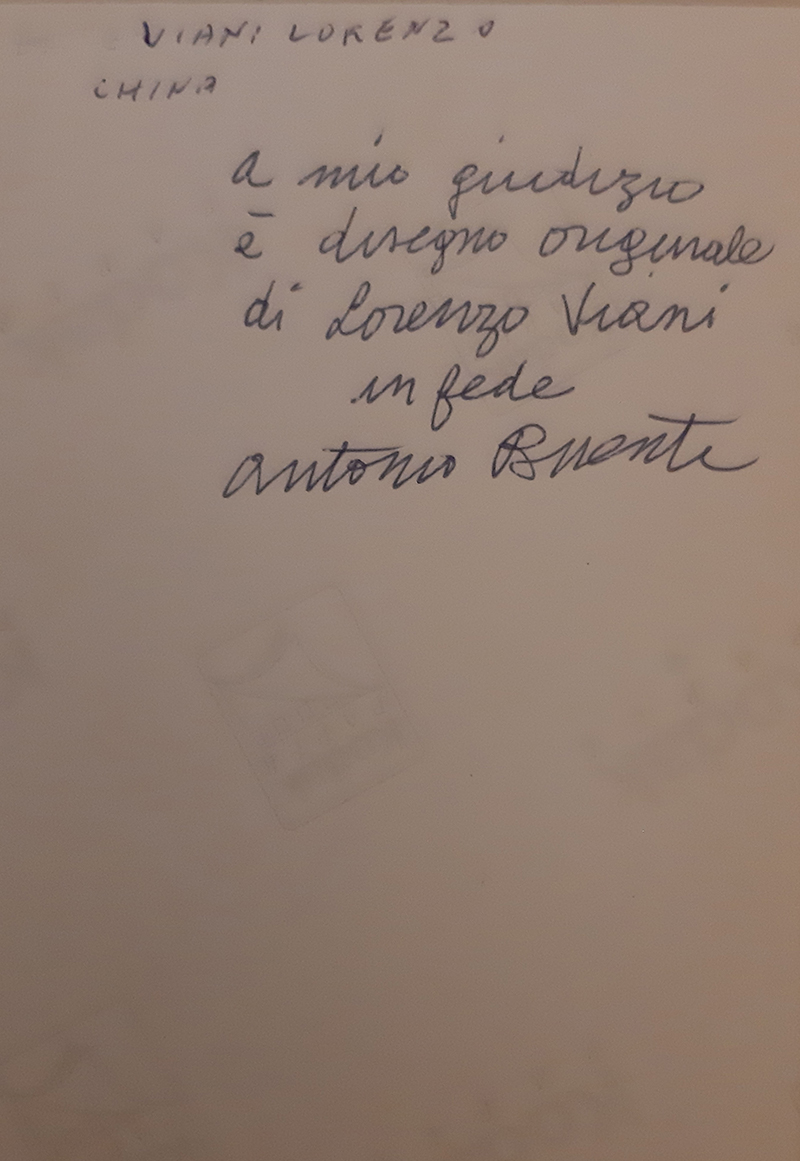 VIANI LORENZO
CHINA
a mio giudizio
è disegno originale
di Lorenzo Viani
in fede
Antonio